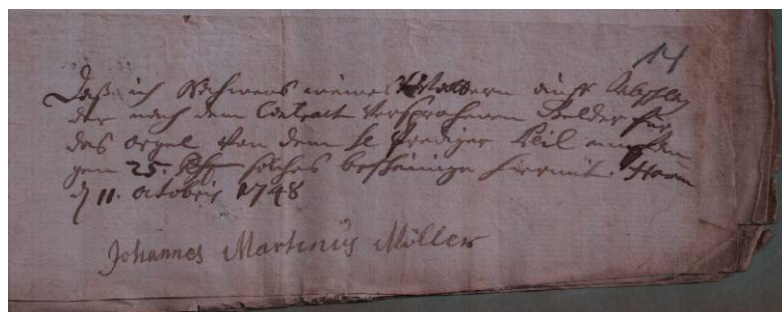 14
Daß ich Nahmens meines Vattern auff Abschlag
der nach dem Contract versprochenen Gelder für
das orgel von dem H. Prediger Keil empfan
gen 25. solches bescheinige hiermit. Haan
d 11. octobris 1748
Johannes Martinus Möller